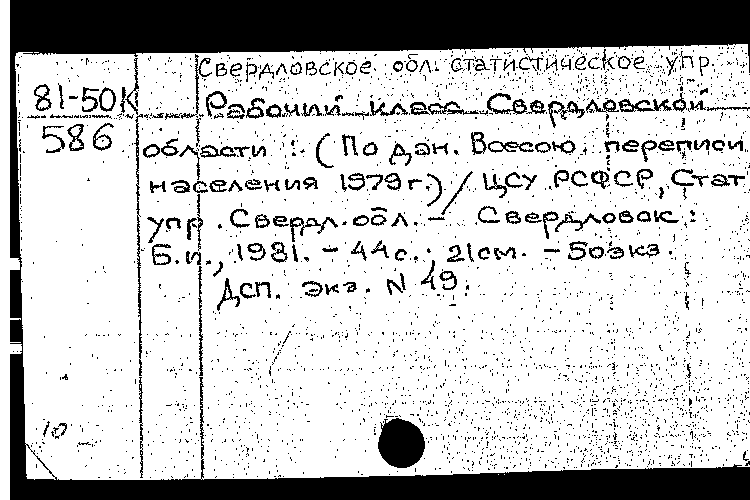 Свердловское обл. статистическое упр.
81-50К
586
Рабочий класс Свердловской
области : (По дан. Всесою. переписи
населения 1979 г.) / ЦСУ РСФСР, Стат
упр. Свердл. обл. - Свердловск :
Б.и., 1981. - 44 с. ; 21 см. - 50 экз.
ДСП. Экз. N 49.
10